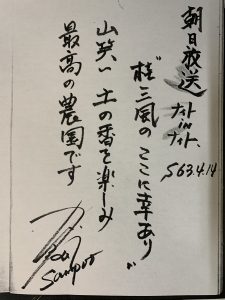 朝日放送
ナイト
in
ナイト
S63.4.14
"桂三風の ここに幸あり"
山笑い 土の香を楽しみ
最高の農園です
Sanpoo